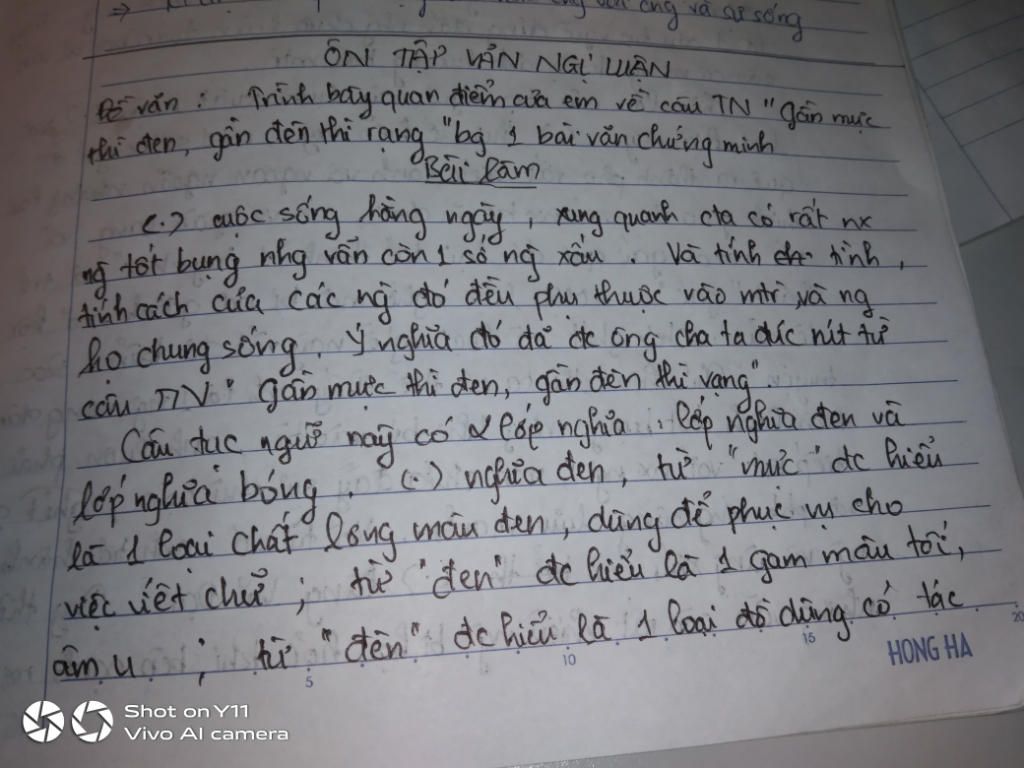 ống và sự sống
ÔN TẬP VĂN NGỊ LUẬN
Đề văn : Trình bày quan điểm của em về câu TN "gần mực
thì đen, gần đèn thì rạng" bg 1 bài văn chứng minh
Bài làm
(.) cuộc sống hằng ngày, xung quanh cta có rất nx
ng tốt bụng nhg vẫn còn 1 số ng xấu. Và tính tình,
tính cách của các ng đó đều phụ thuộc vào mtr và ng
họ chung sống. Ý nghĩa đó đã đc ông cha ta đúc rút từ
câu TN "Gần mực thì đen, gần đèn thì vạng".
Câu tục ngữ này có 2 lớp nghĩa : lớp nghĩa đen và
lớp nghĩa bóng. (.) nghĩa đen, từ "mực" đc hiểu
là 1 loại chất lỏng màu đen, dùng để phục vụ cho
việc viết chữ ; từ "đen" đc hiểu là 1 gam màu tối,
âm u ; từ "đèn" đc hiểu là 1 loại đồ dùng có tác
5 10 15 20
HONG HA
Shot on Y11
Vivo AI camera